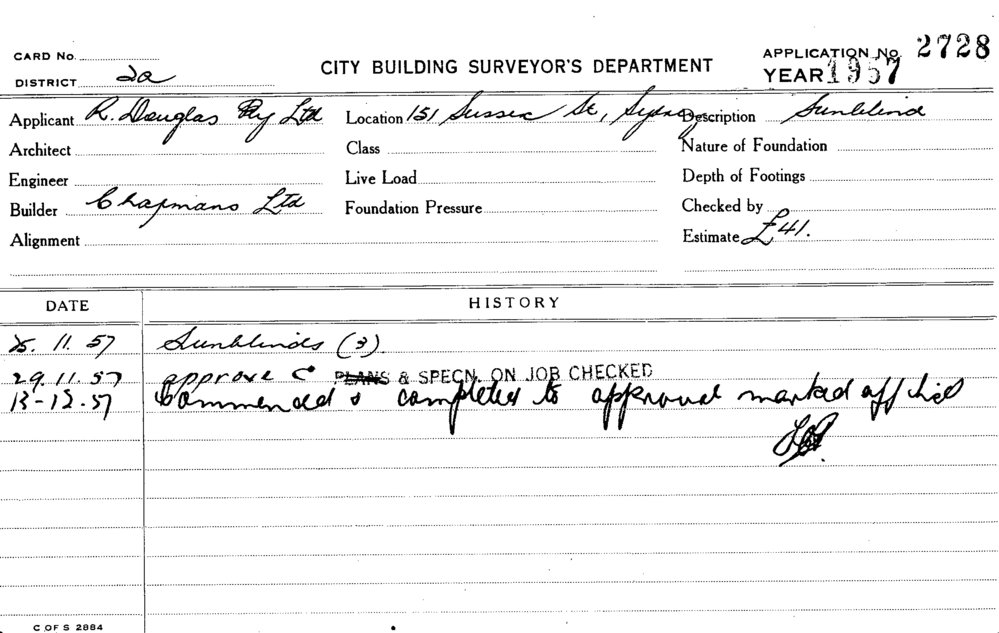 CARD No.
DISTRICT 2a
CITY BUILDING SURVEYOR'S DEPARTMENT
APPLICATION No. 2728
YEAR 1957
Applicant R. Douglas Pty Ltd
Location 151 Sussex St, Sydney
Description Sunblind
Architect
Class
Nature of Foundation
Engineer
Live Load
Depth of Footings
Builder Chapmans Ltd
Foundation Pressure
Checked by
Alignment
Estimate £41.
DATE HISTORY
25. 11. 57 Sunblinds (3).
29. 11. 57 approve C PLANS & SPECN. ON JOB CHECKED
13-12-57 Commenced & completed to approval marked off
C OF S 2884